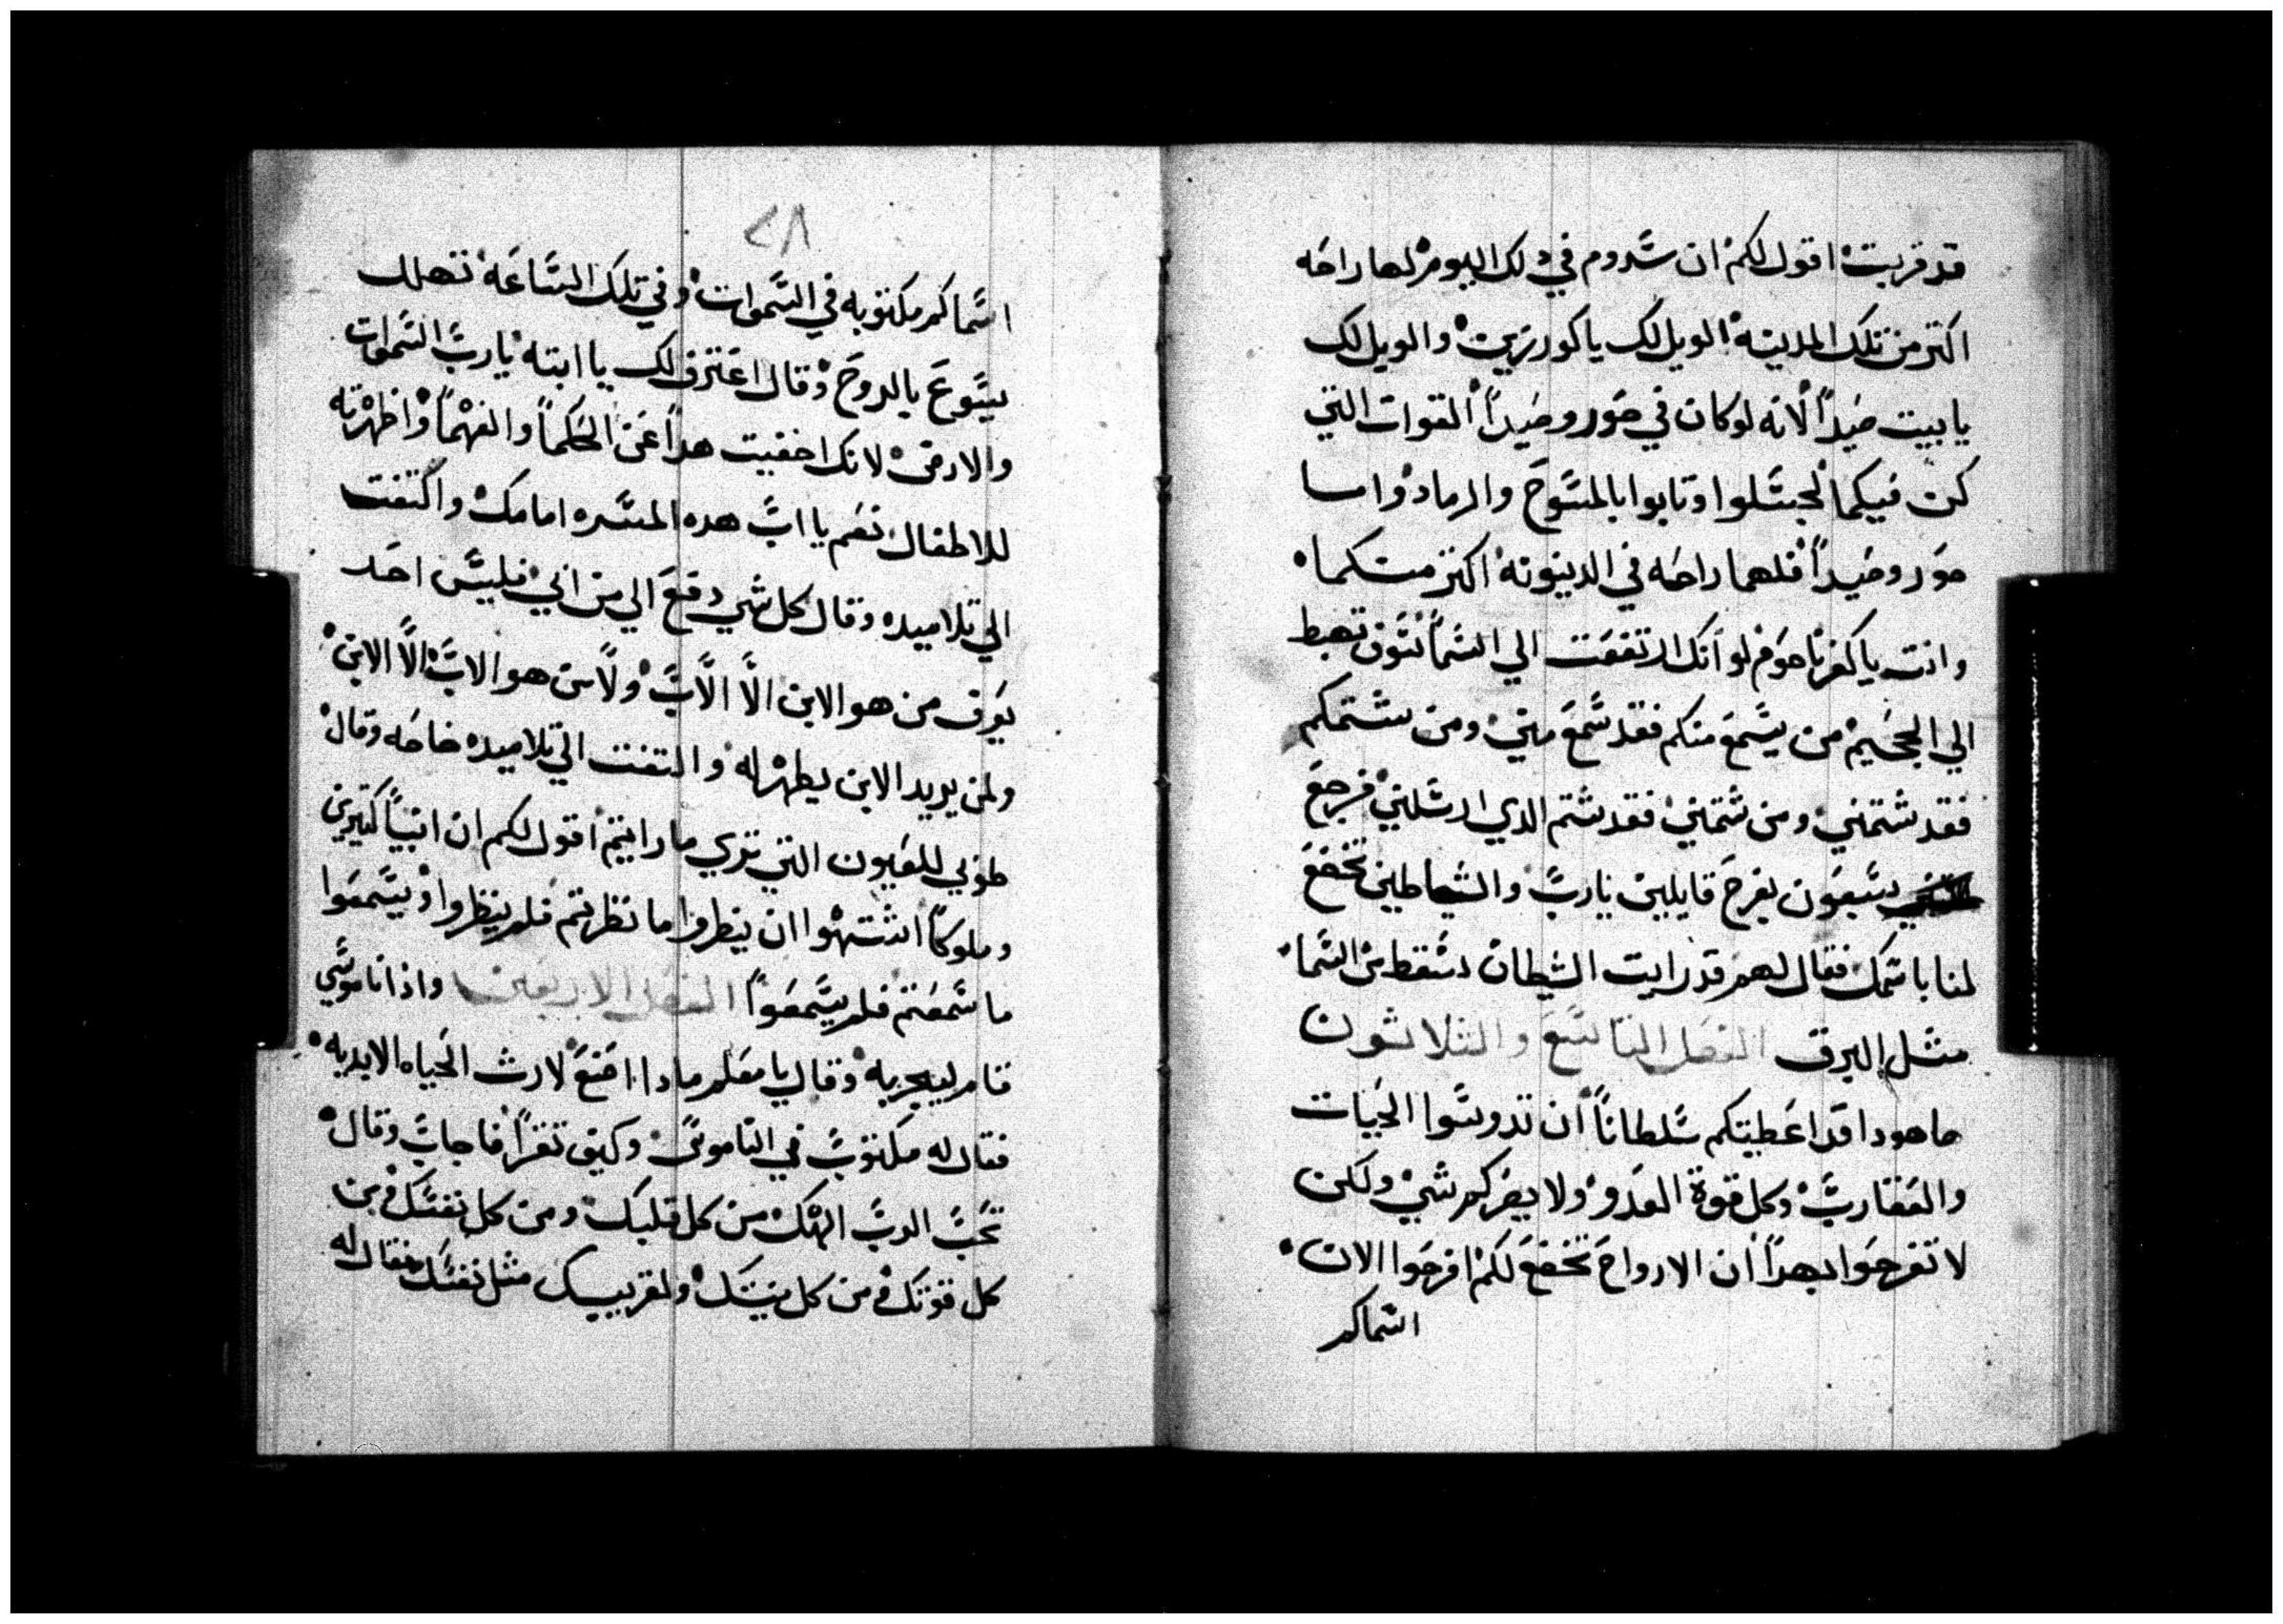 قد قربت اقول لكم ان سدوم في دلك اليوم لها راحه
اكتر من تلك المدينه الويل لك يا كورزين والويل لك
يا بيت صيدا لانه لو كان في صور وصيدا القوات التي
كن فيكما لجبسلوا وتابوا بالمسوح والرماد واما
صور وصيدا فلهما راحه في الدينونه اكتر منكما
وانت يا كفرناحوم لو انك ارتفعت الي السما سوف تهبط
الي الجحيم من يسمع منكم فقد سمع مني ومن شتمكم
فقد شتمني ومن شتمني فقد شتم الدي ارسلني فرجع
السبعون بفرح قايلين يارب والشياطين تخضع
لنا باسمك فقال لهم قد رايت الشيطان سقط من السما
مثل البرق الفصل التاسع والثلاثون
ها هودا قد اعطيتكم سلطانا ان تدوسوا الحيات
والعقارب وكل قوة العدو ولا يضركم شي ولكن
لا تفرحوا بهدا ان الارواح تخضع لكم افرحوا الان
اسماكم
٢٨
اسماكم مكتوبه في السموات وفي تلك الساعه تهلل
يسوع بالروح وقال اعترف لك يا ابتاه يارب السموات
والارض لانك اخفيت هدا عن الحكما والفهما واظهرته
للاطفال نعم يا اب هده المسره امامك والتفت
الي تلاميده وقال كل شي دفع الي من ابي فليس احد
يعرف من هو الابن الا الاب ولا من هو الاب الا الابن
ولمن يريد الابن يظهر له والتفت الي تلاميده خاصه وقال
طوبي للعيون التي تري ما رايتم اقول لكم ان انبيا كتيرين
وملوكا اشتهوا ان ينظروا ما نظرتم فلم ينظروا ويسمعوا
ما سمعتم فلم يسمعوا الفصل الاربعين واذا ناموسي
قام ليجربه وقال يا معلم مادا اصنع لارث الحياه الابديه
فقال له مكتوب في الناموس وكيف تقرا فاجاب وقال
تحب الرب الهك من كل قلبك ومن كل نفسك ومن
كل قوتك ومن كل نيتك ولقريبك مثل نفسك فقال له